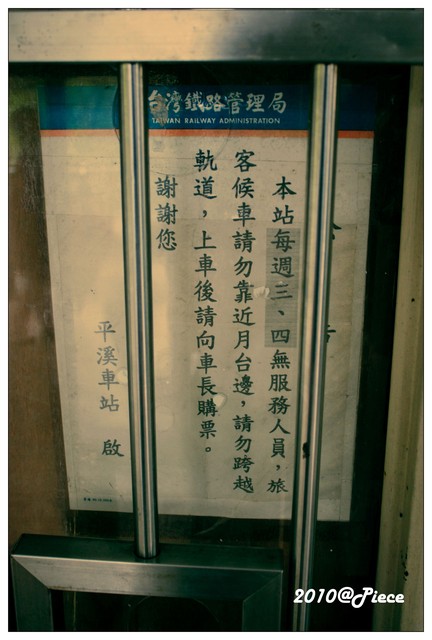 台灣鐵路管理局
TAIWAN RAILWAY ADMINISTRATION
本站每週三、四無服務人員，旅
客候車請勿靠近月台邊，請勿跨越
軌道，上車後請向車長購票。
謝謝您
平溪車站 啟
2010@Piece